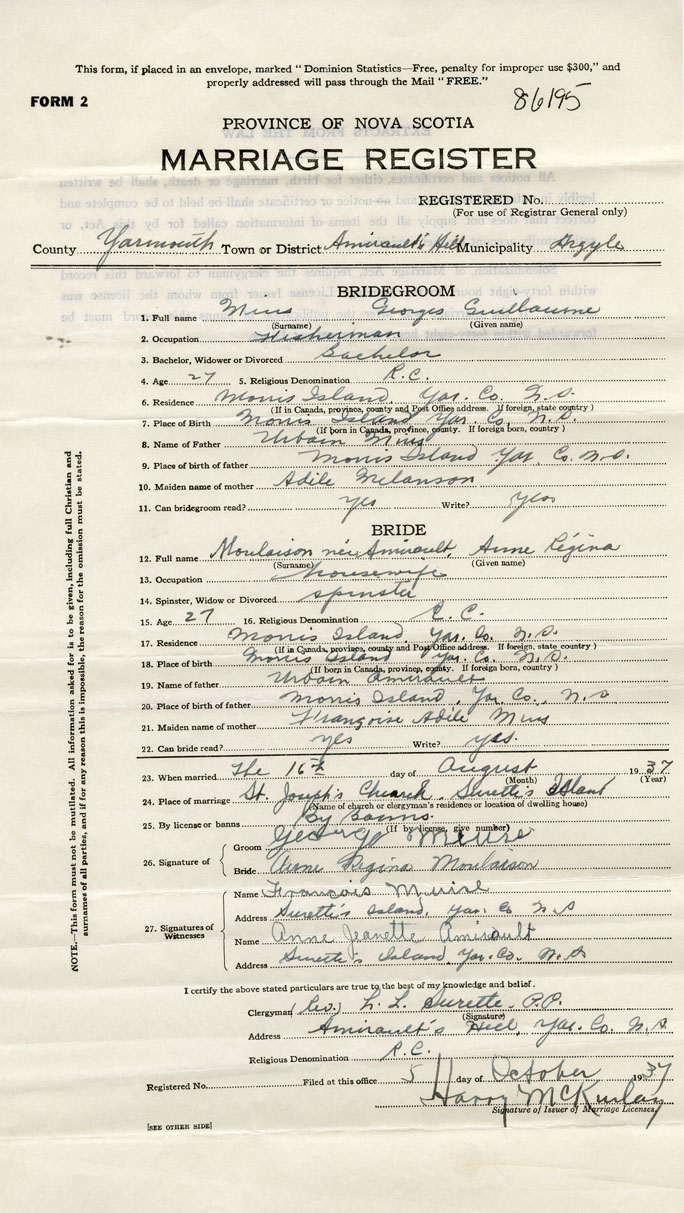 This form, if placed in an envelope, marked "Dominion Statistics—Free, penalty for improper use $300," and
properly addressed will pass through the Mail "FREE."
FORM 2
86195
PROVINCE OF NOVA SCOTIA
MARRIAGE REGISTER
REGISTERED No.
(For use of Registrar General only)
County Yarmouth Town or District Amirault's Hill Municipality Argyle
BRIDEGROOM
1. Full name Mius Georges Guillaume
(Surname) (Given name)
2. Occupation Fisherman
3. Bachelor, Widower or Divorced Bachelor
4. Age 27 5. Religious Denomination R.C.
6. Residence Morris Island, Yar. Co. N.S.
(If in Canada, province, county and Post Office address. If foreign, state country)
7. Place of Birth Morris Island Yar. Co. N.S.
(If born in Canada, province, county. If foreign born, country)
8. Name of Father Urbain Mius
9. Place of birth of father Morris Island Yar. Co. N.S.
10. Maiden name of mother Adèle Melanson
11. Can bridegroom read? yes Write? yes
BRIDE
12. Full name Moulaison née Amirault, Anne Régina
(Surname) (Given name)
13. Occupation housewife
14. Spinster, Widow or Divorced spinster
15. Age 27 16. Religious Denomination R.C.
17. Residence Morris Island, Yar. Co. N.S.
(If in Canada, province, county and Post Office address. If foreign, state country)
18. Place of birth Morris Island Yar. Co. N.S.
(If born in Canada, province, county. If foreign born, country)
19. Name of father Urbain Amirault
20. Place of birth of father Morris Island, Yar Co., N.S
21. Maiden name of mother Françoise Adèle Mius
22. Can bride read? yes Write? yes.
23. When married The 16th day of August 1937
(Month) (Year)
24. Place of marriage St. Joseph's Church, Surette's Island
(Name of church or clergyman's residence or location of dwelling house)
25. By license or banns By Banns.
(If by license, give number)
26. Signature of
Groom George Meuse
Bride Anne Regina Moulaison
27. Signatures of Witnesses
Name François Muise
Address Surette's Island, Yar. Co N.S
Name Anne Jeanette Amirault
Address Surette's Island, Yar. Co. N.S
I certify the above stated particulars are true to the best of my knowledge and belief.
Clergyman (Rev.) L. L. Surette, P.P.
(Signature)
Address Amirault's Hill, Yar. Co. N.S.
Religious Denomination R.C.
Registered No. Filed at this office 5 day of October 1937
Harry McKinlay
Signature of Issuer of Marriage Licenses.
[SEE OTHER SIDE]
NOTE.—This form must not be mutilated. All information asked for is to be given, including full Christian and
surnames of all parties, and if for any reason this is impossible, the reason for the omission must be stated.